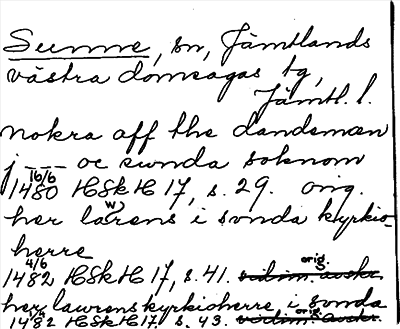 Sunne, sn, Jämtlands
västra domsagas tg,
Jämtl. l.
nokra aff the dandemæn
j --- oc sunda soknom
16/6
1480 HSkH 17, s. 29. orig.
her larens i sunda kyrkio-
w
herre
4/6 orig.
1482 HSkH 17, s. 41. vidim. avskr.
her lawrens kyrkioherre i sunda
4/6 orig.
1482 HSkH 17, s. 43. vidim. avskr.